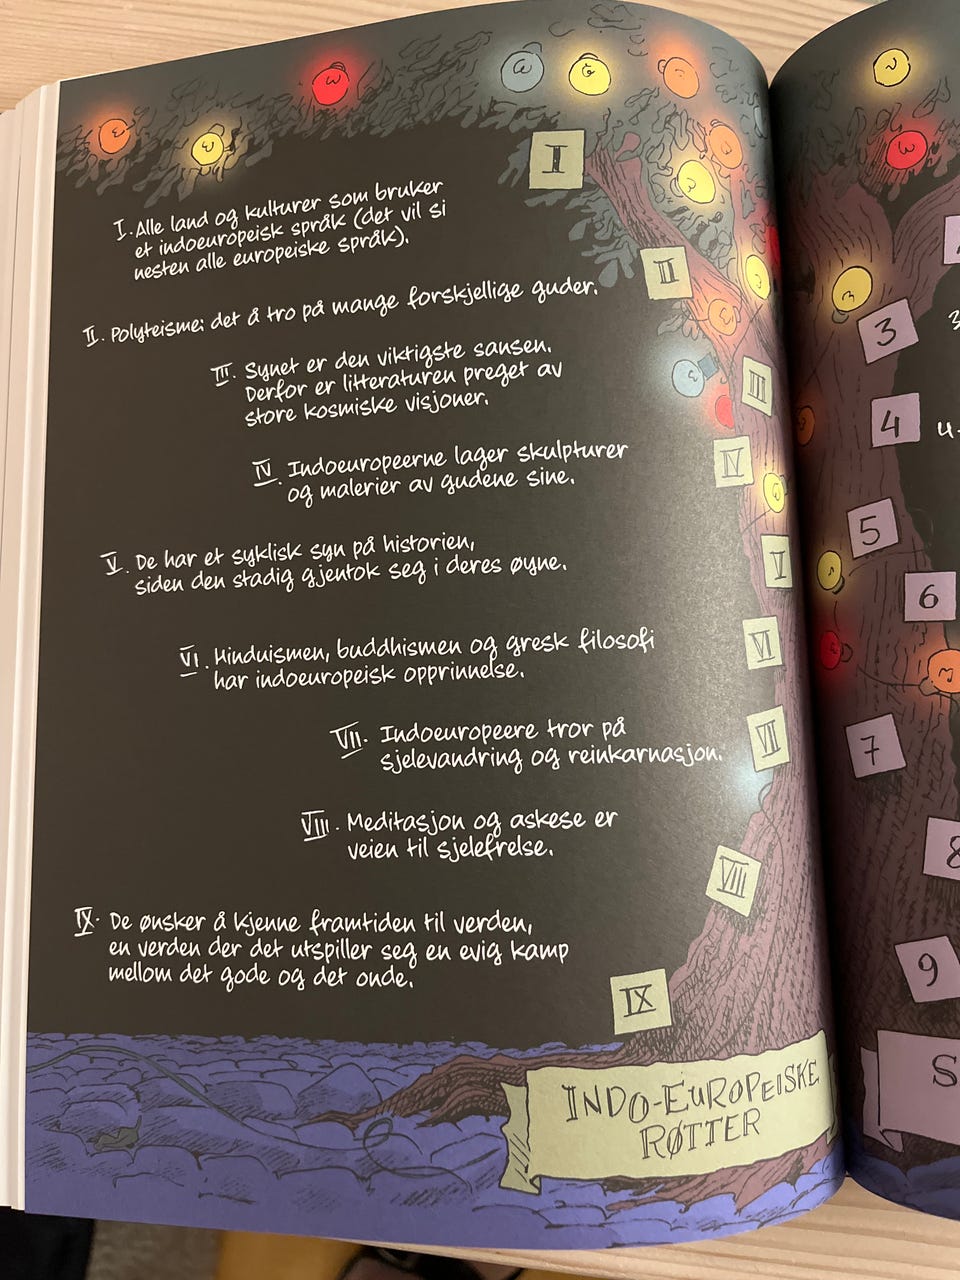 I. Alle land og kulturer som bruker
et indoeuropeisk språk (det vil si
nesten alle europeiske språk).
II. Polyteisme: det å tro på mange forskjellige guder.
III. Synet er den viktigste sansen.
Derfor er litteraturen preget av
store kosmiske visjoner.
IV. Indoeuropeerne lager skulpturer
og malerier av gudene sine.
V. De har et syklisk syn på historien,
siden den stadig gjentok seg i deres øyne.
VI. Hinduismen, buddhismen og gresk filosofi
har indoeuropeisk opprinnelse.
VII. Indoeuropeere tror på
sjelevandring og reinkarnasjon.
VIII. Meditasjon og askese er
veien til sjelefrelse.
IX. De ønsker å kjenne framtiden til verden,
en verden der det utspiller seg en evig kamp
mellom det gode og det onde.
I
II
III
IV
V
VI
VII
VIII
IX
INDO-EUROPEISKE
RØTTER
3
4
5
6
7
8
9
3
4-
S